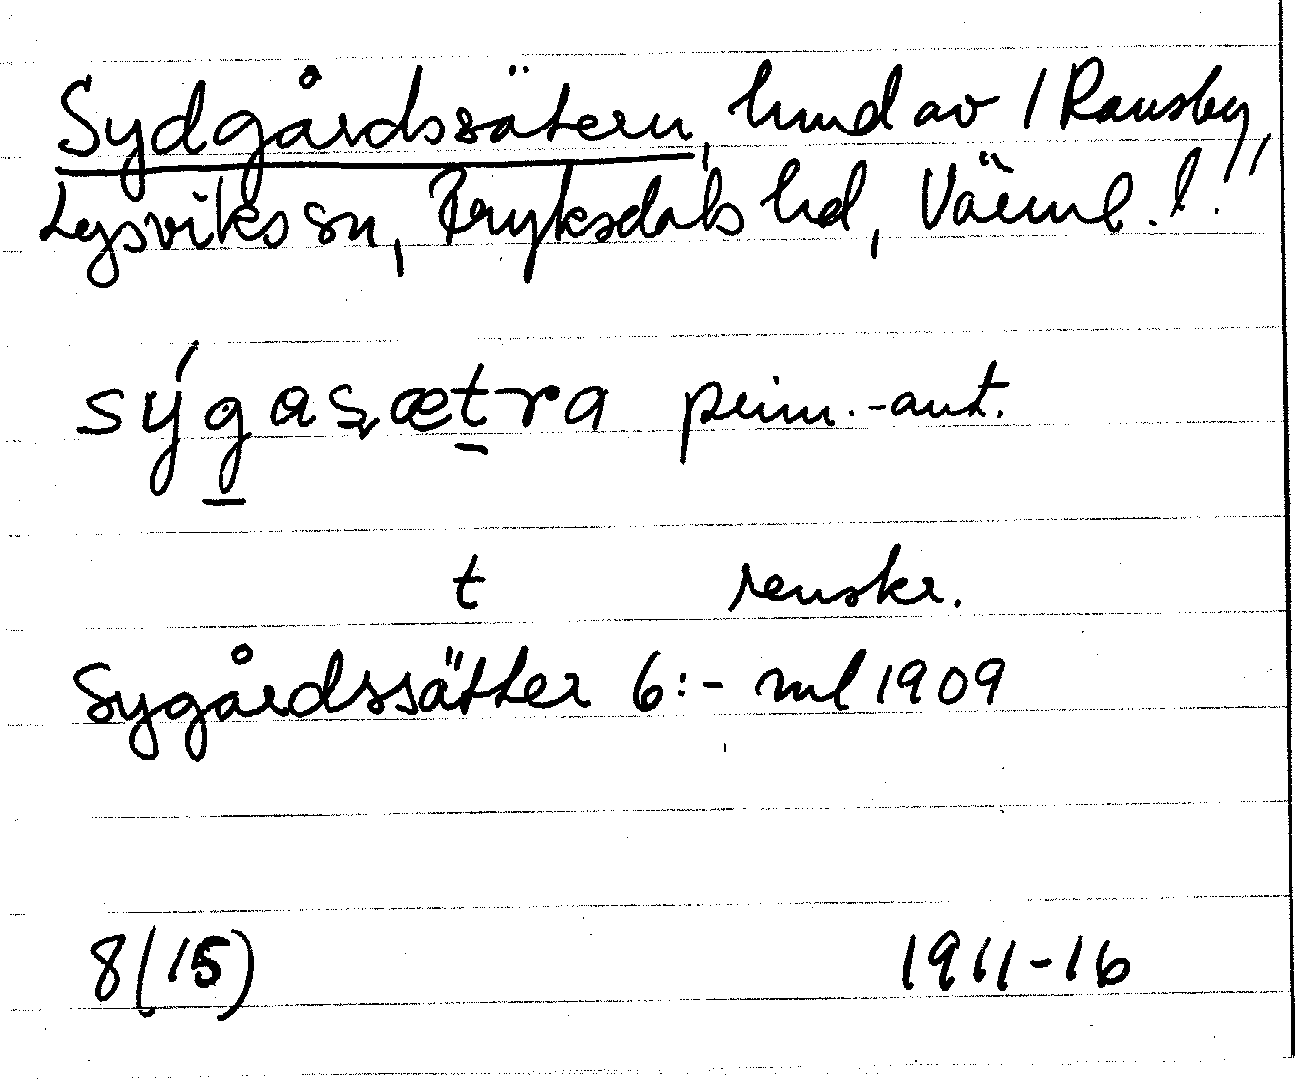 Sydgårdssätern, hmd av 1 Ransby,
Lysviks sn, Fryksdals hd, Värml. l.
sýgasætra prim.-ant.
t renskr.
Sygårdssätter 6:- ml 1909
8(15) 1911-16